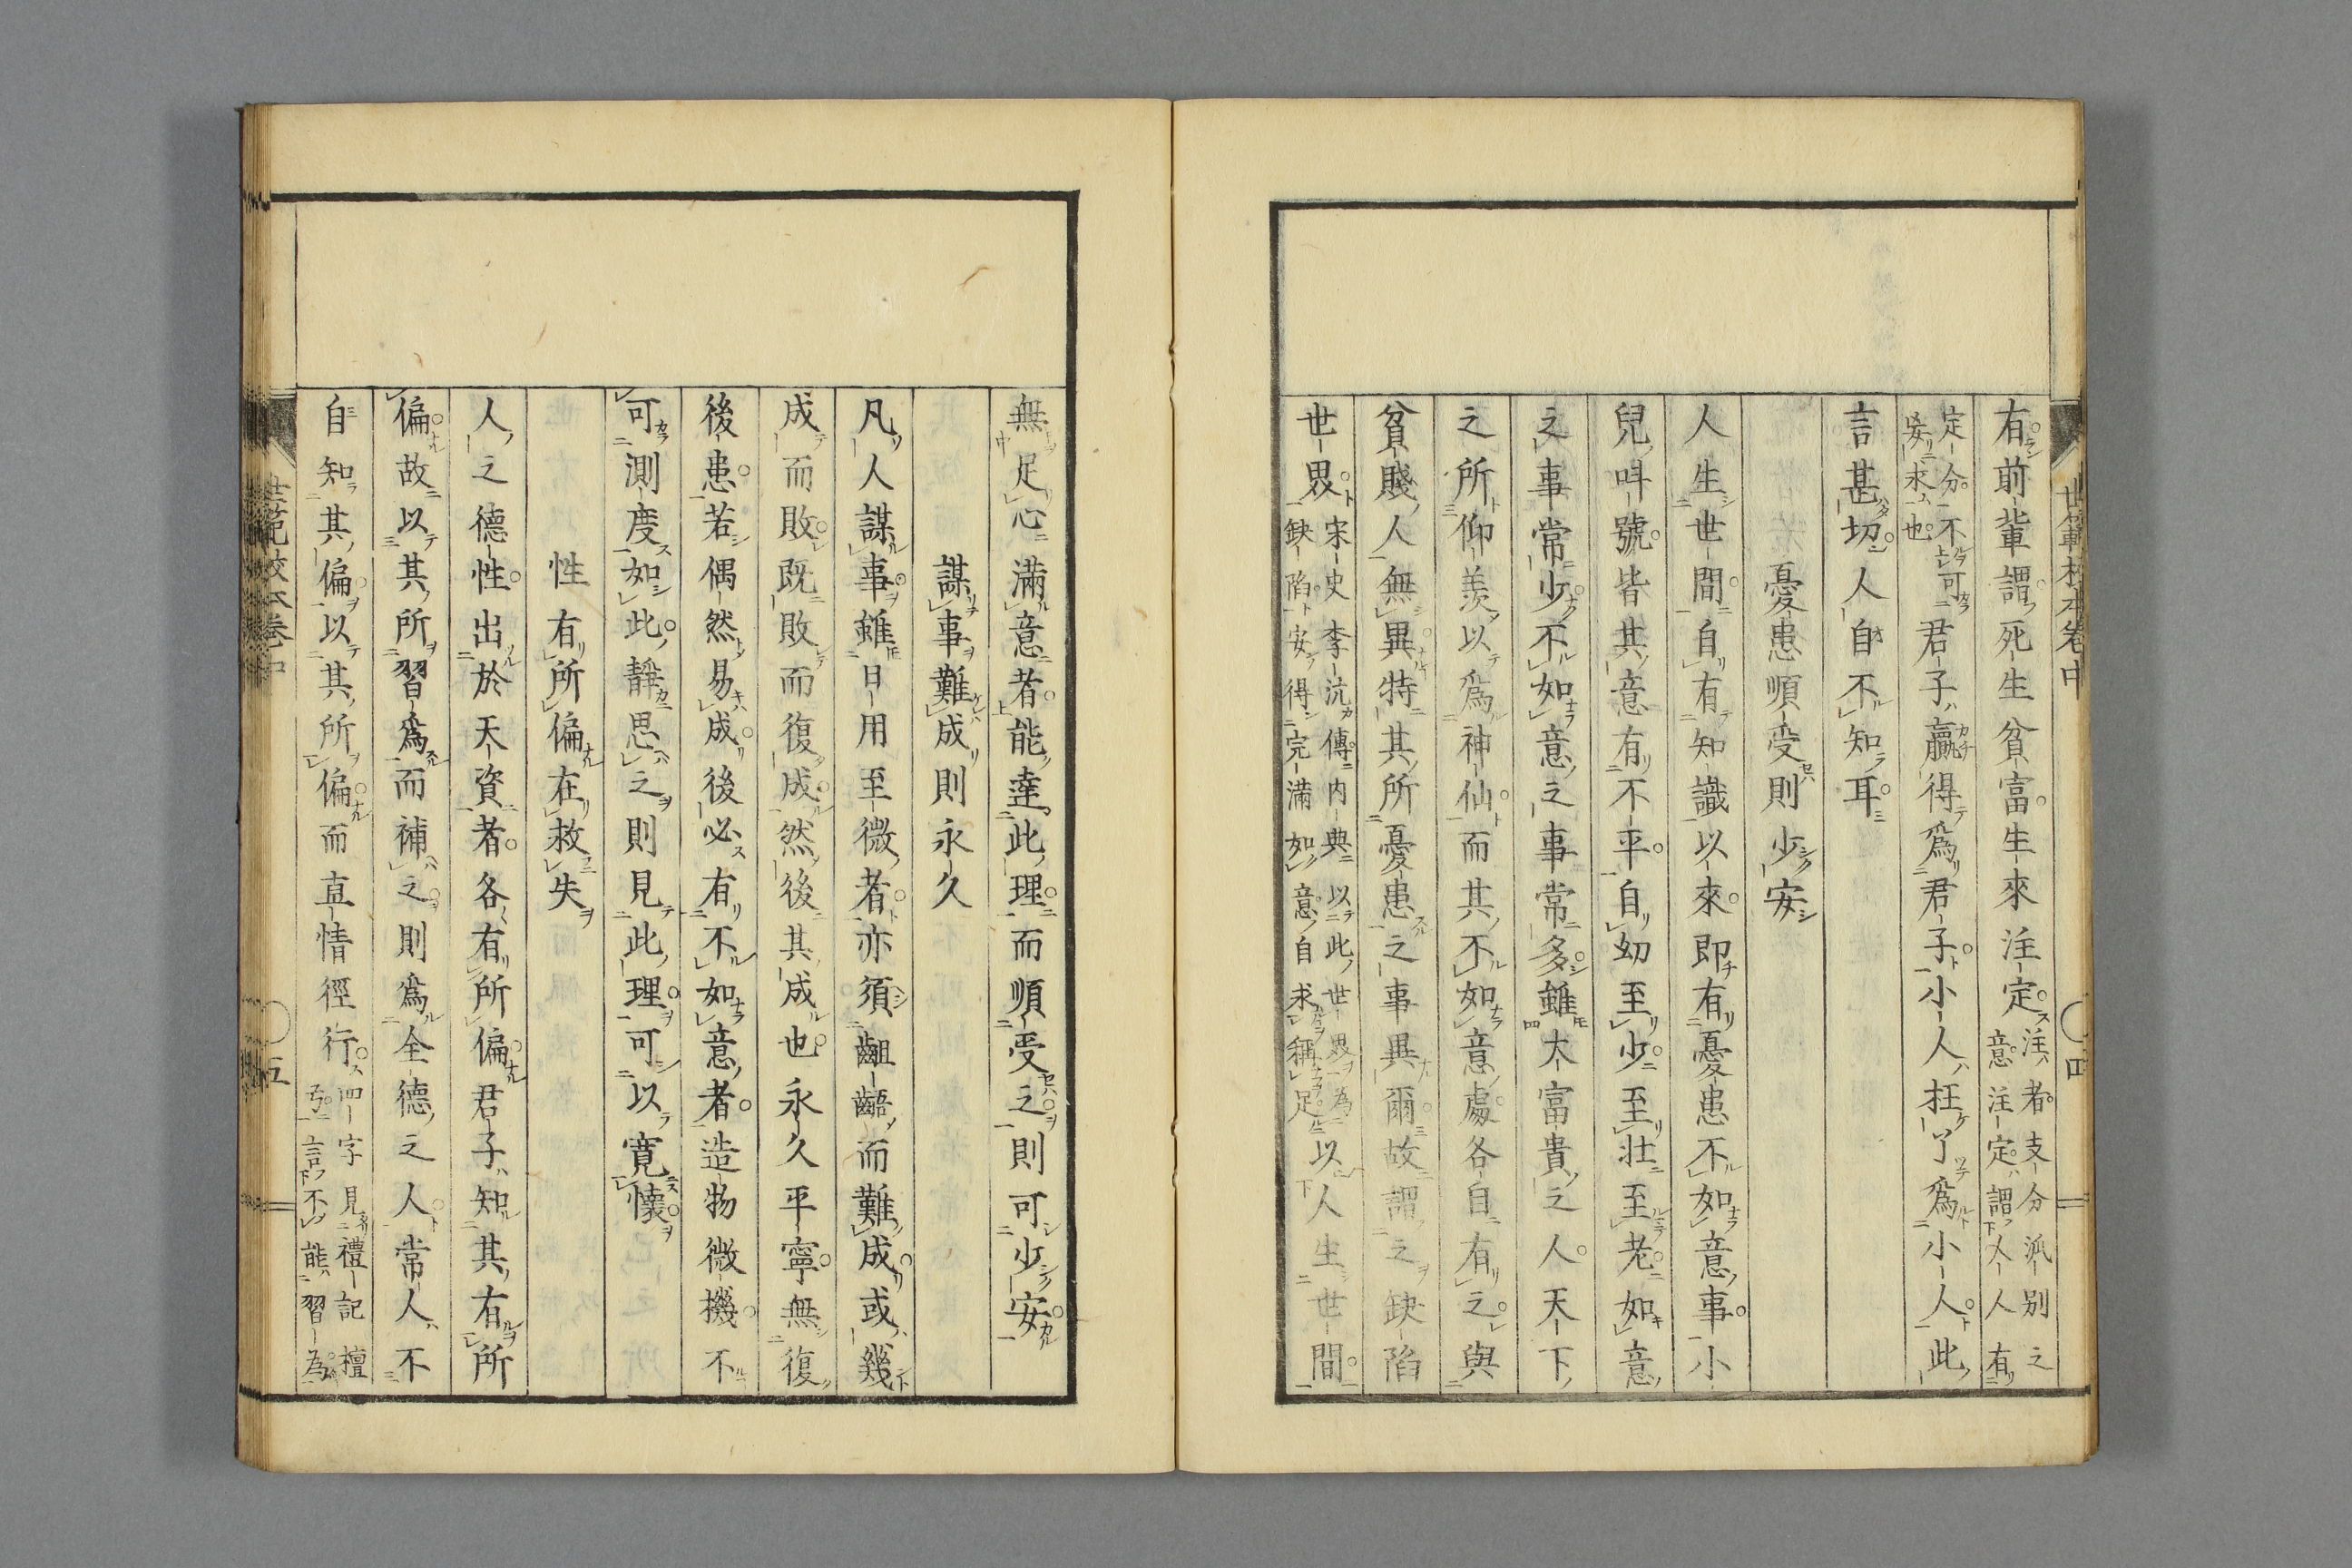 世範校本卷中 四
有前輩謂死生貧富生來注定
注者支分派別之
意注定謂人人有
定分不可
妄求也
君子贏得爲君子小人枉了爲小人此
言甚切人自不知耳
憂患順受則少安
人生世間自有知識以來即有憂患不如意事小
兒叫號皆其意有不平自幼至少至壮至老如意
之事常少不如意之事常多雖大富貴之人天下
之所仰羨以爲神仙而其不如意處各自有之與
貧賤人無異特其所憂患之事異爾故謂之缺陷
世界
宋史李沆傳内典以此世界為
缺陷安得完滿如意自求稱足
以人生世間
無足心滿意者能達此理而順受之則可少安
謀事難成則永久
凡人謀事雖日用至微者亦須齟齬而難成或幾
成而敗既敗而復成然後其成也永久平寧無復
後患若偶然易成後必有不如意者造物微機不
可測度如此靜思之則見此理可以寛懷
性有所偏在救失
人之德性出於天資者各有所偏君子知其有所
偏故以其所習爲而補之則爲全德之人常人不
自知其偏以其所偏而直情徑行
四字見禮記檀
弓言不能習為
世範校本卷中 五